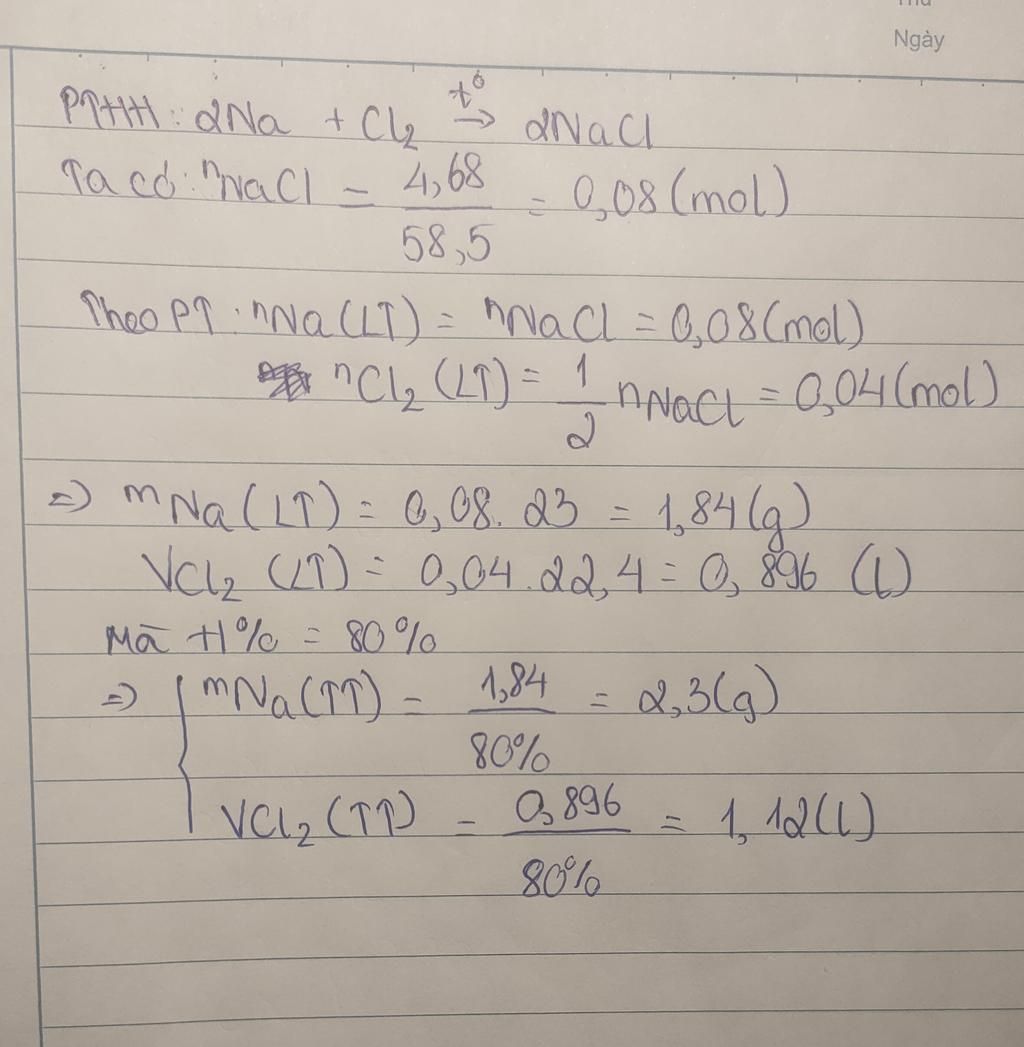 Ngày
PTHH: 2Na + Cl₂ →(t°) 2NaCl
Ta có: nNaCl = 4,68/58,5 = 0,08 (mol)
Theo PT: nNa(LT) = nNaCl = 0,08 (mol)
nCl₂ (LT) = 1/2 nNaCl = 0,04 (mol)
=> mNa (LT) = 0,08. 23 = 1,84 (g)
VCl₂ (LT) = 0,04. 22,4 = 0, 896 (l)
Mã H% = 80%
=> { mNa(TT) = 1,84/80% = 2,3(g)
VCl₂ (TT) = 0,896/80% = 1,12(l)